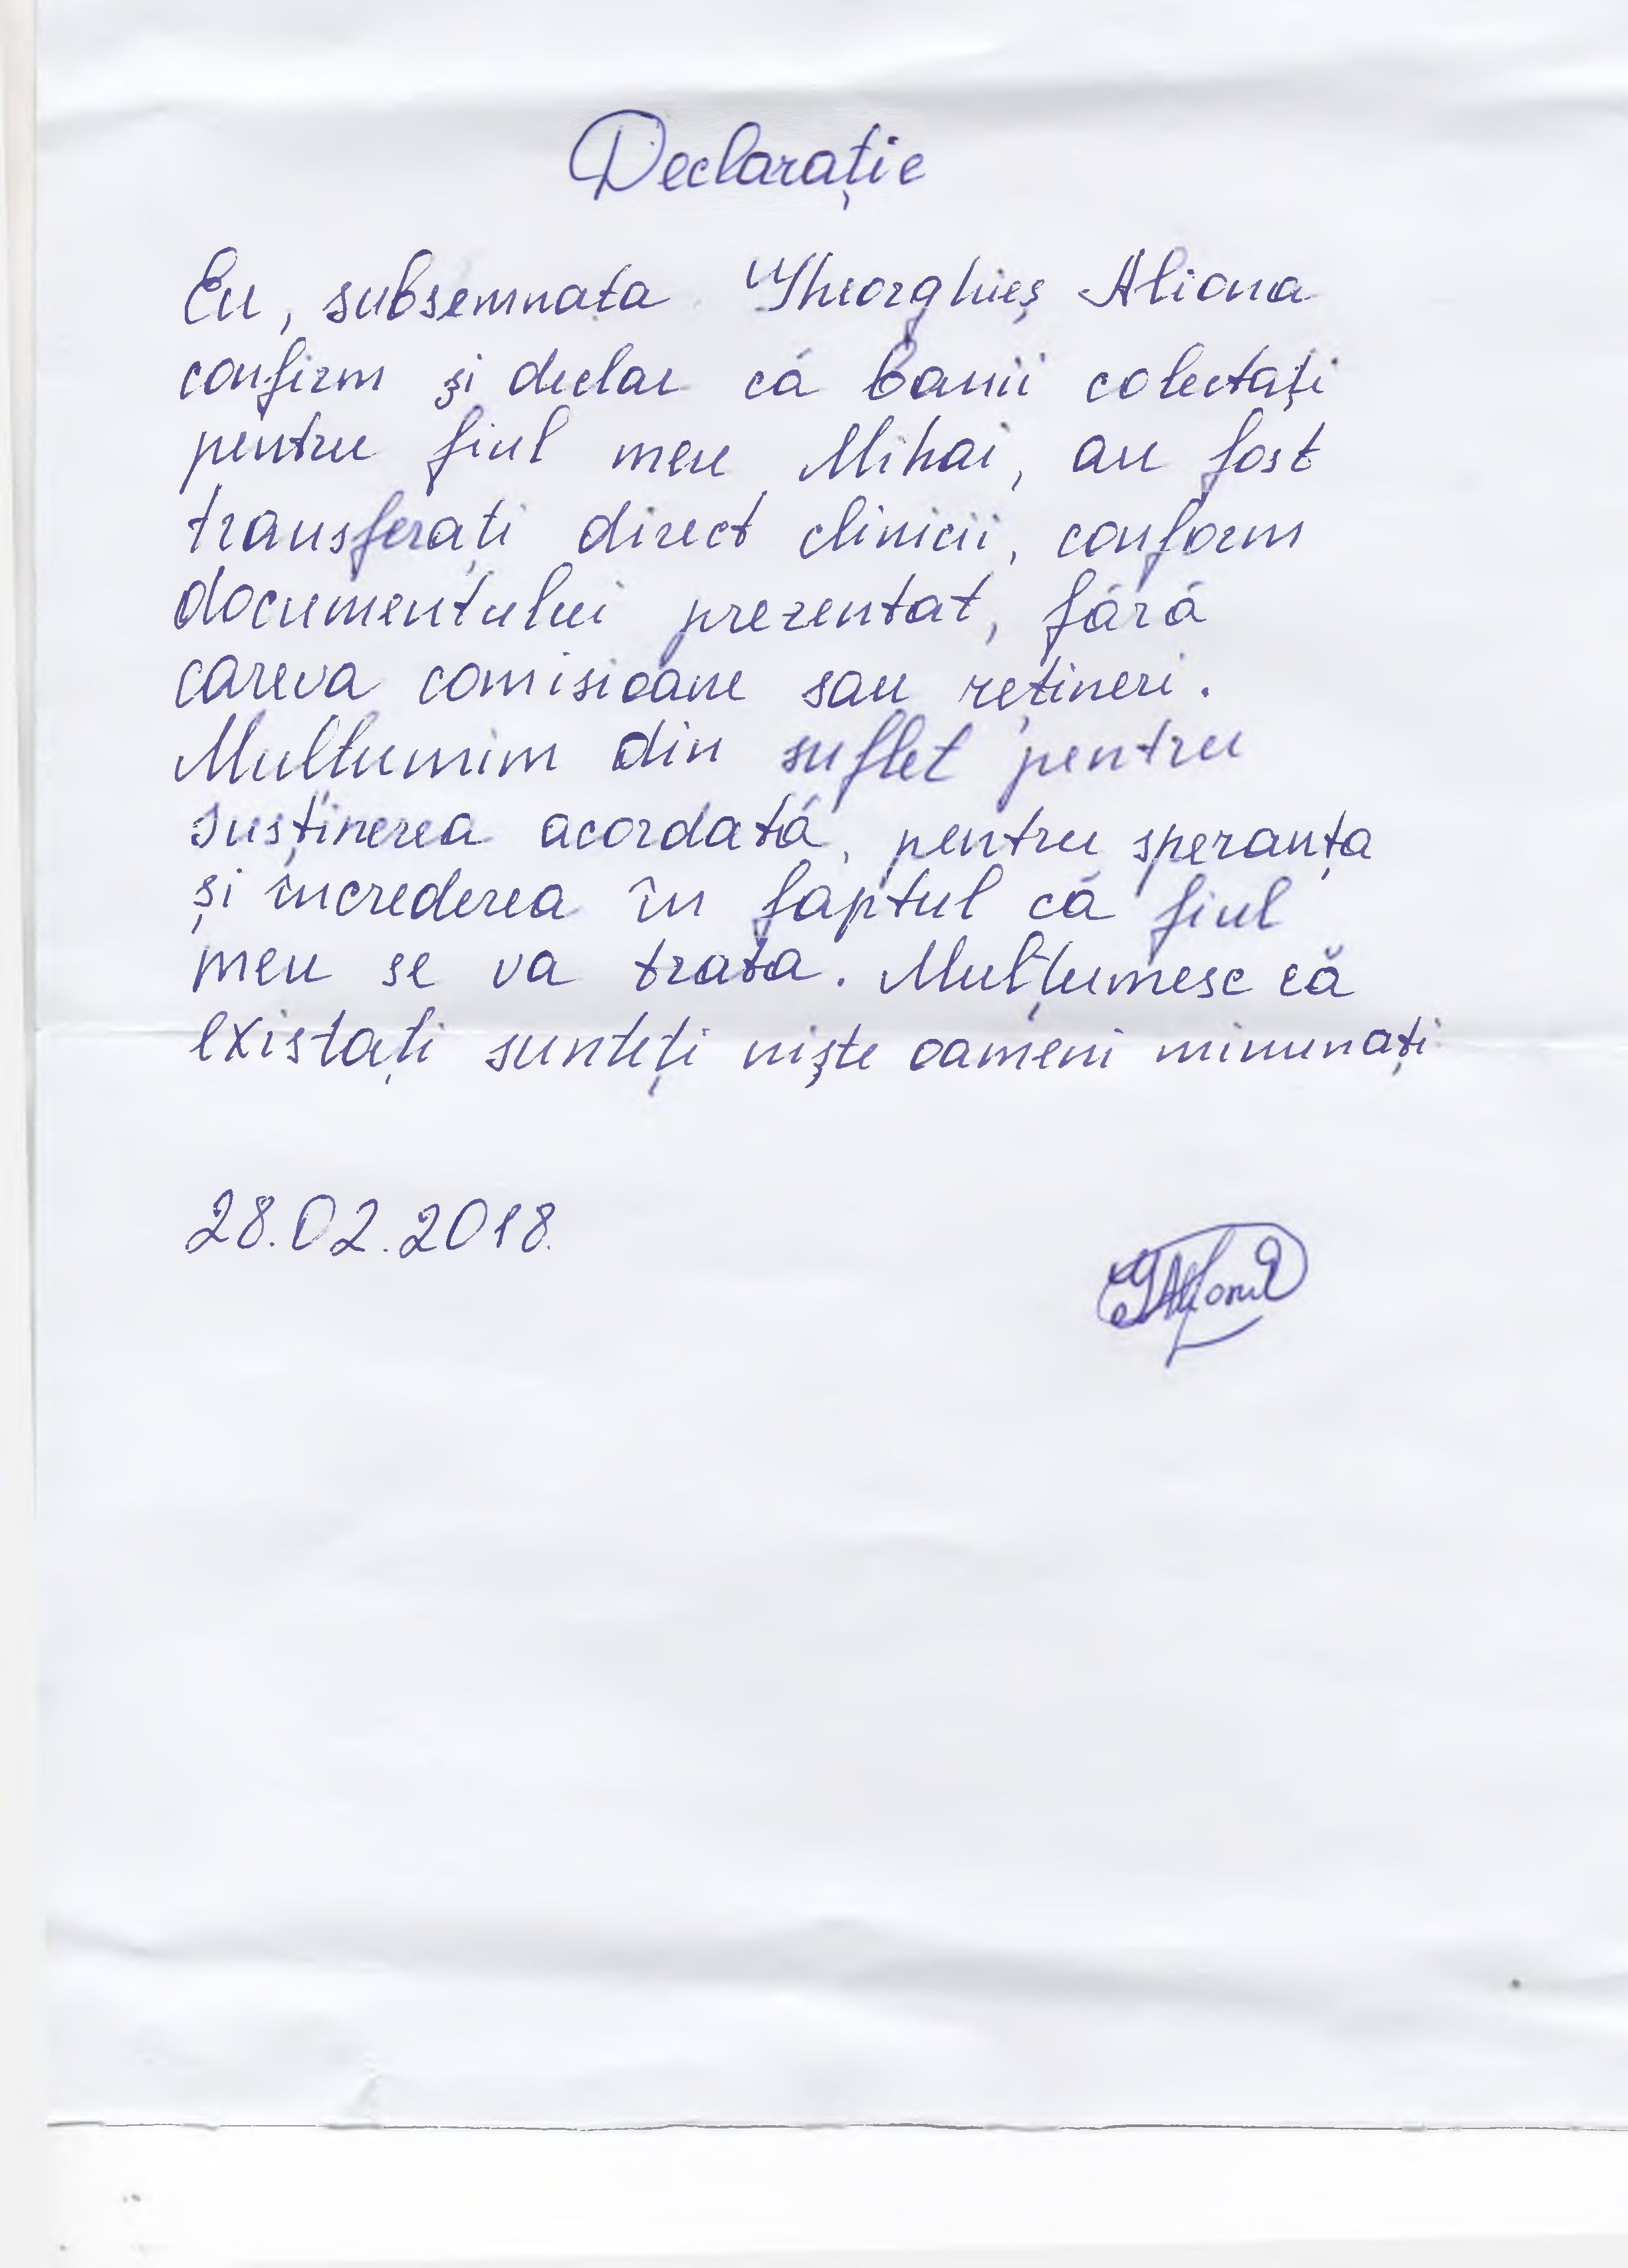 Declarație
Eu, subsemnata Gheorghieș Aliona
confirm și declar că banii colectați
pentru fiul meu Mihai, au fost
transferați direct clinicii, conform
documentului prezentat, fără
careva comisioane sau rețineri.
Mulțumim din suflet pentru
susținerea acordată, pentru speranța
și încrederea în faptul că fiul
meu se va trata. Mulțumesc că
existați sunteți niște oameni minunați
28.02.2018.